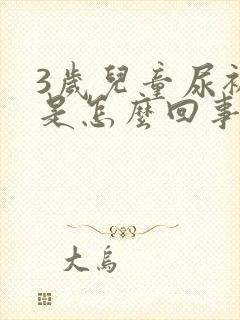 3歲兒童尿褲
是怎麼回事
大烏